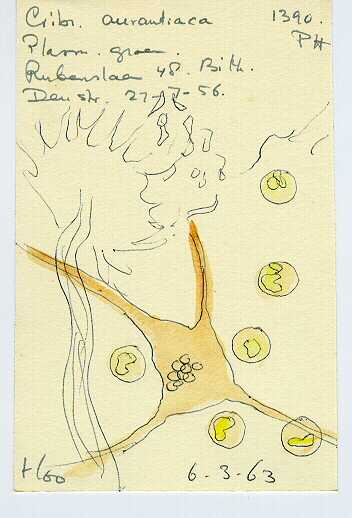 Cribr. aurantiaca 1390.
Plasm. groen. PH
Rubenslaan 48. Bilth.
27-7-56.
6-3-63